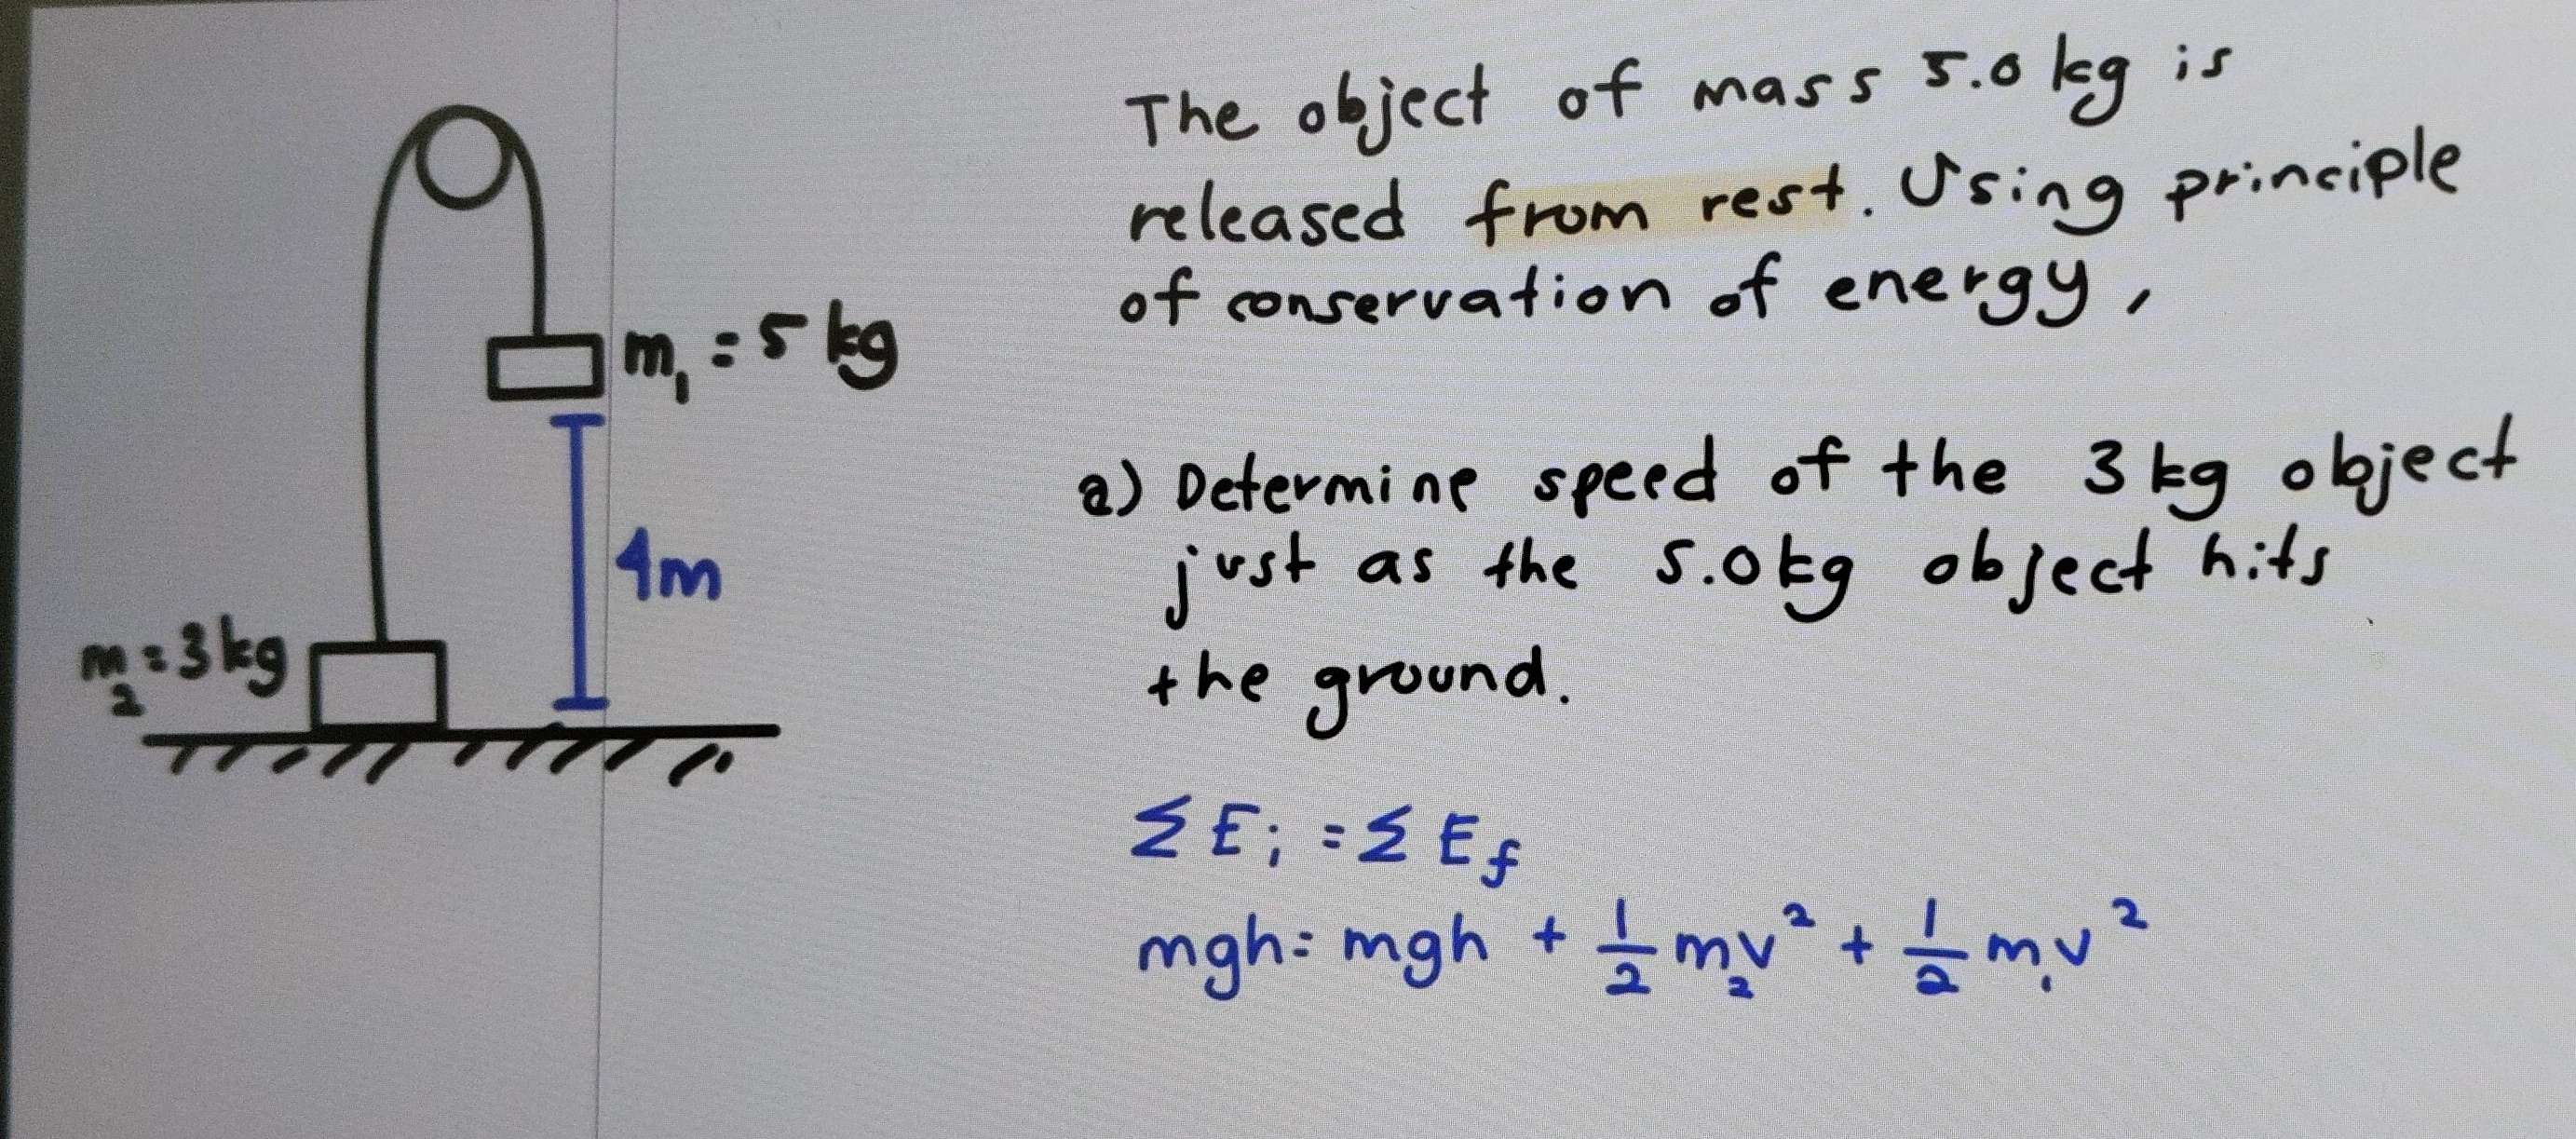 The object of mass 5.0 kg is
released from rest. Using principle
of conservation of energy,
m₁ = 5 kg
a) Determine speed of the 3 kg object
just as the 5.0 kg object hits
the ground.
4m
m₂ = 3 kg
ΣEᵢ = ΣE_f
mgh = mgh + 1/2 m₂v² + 1/2 m₁v²